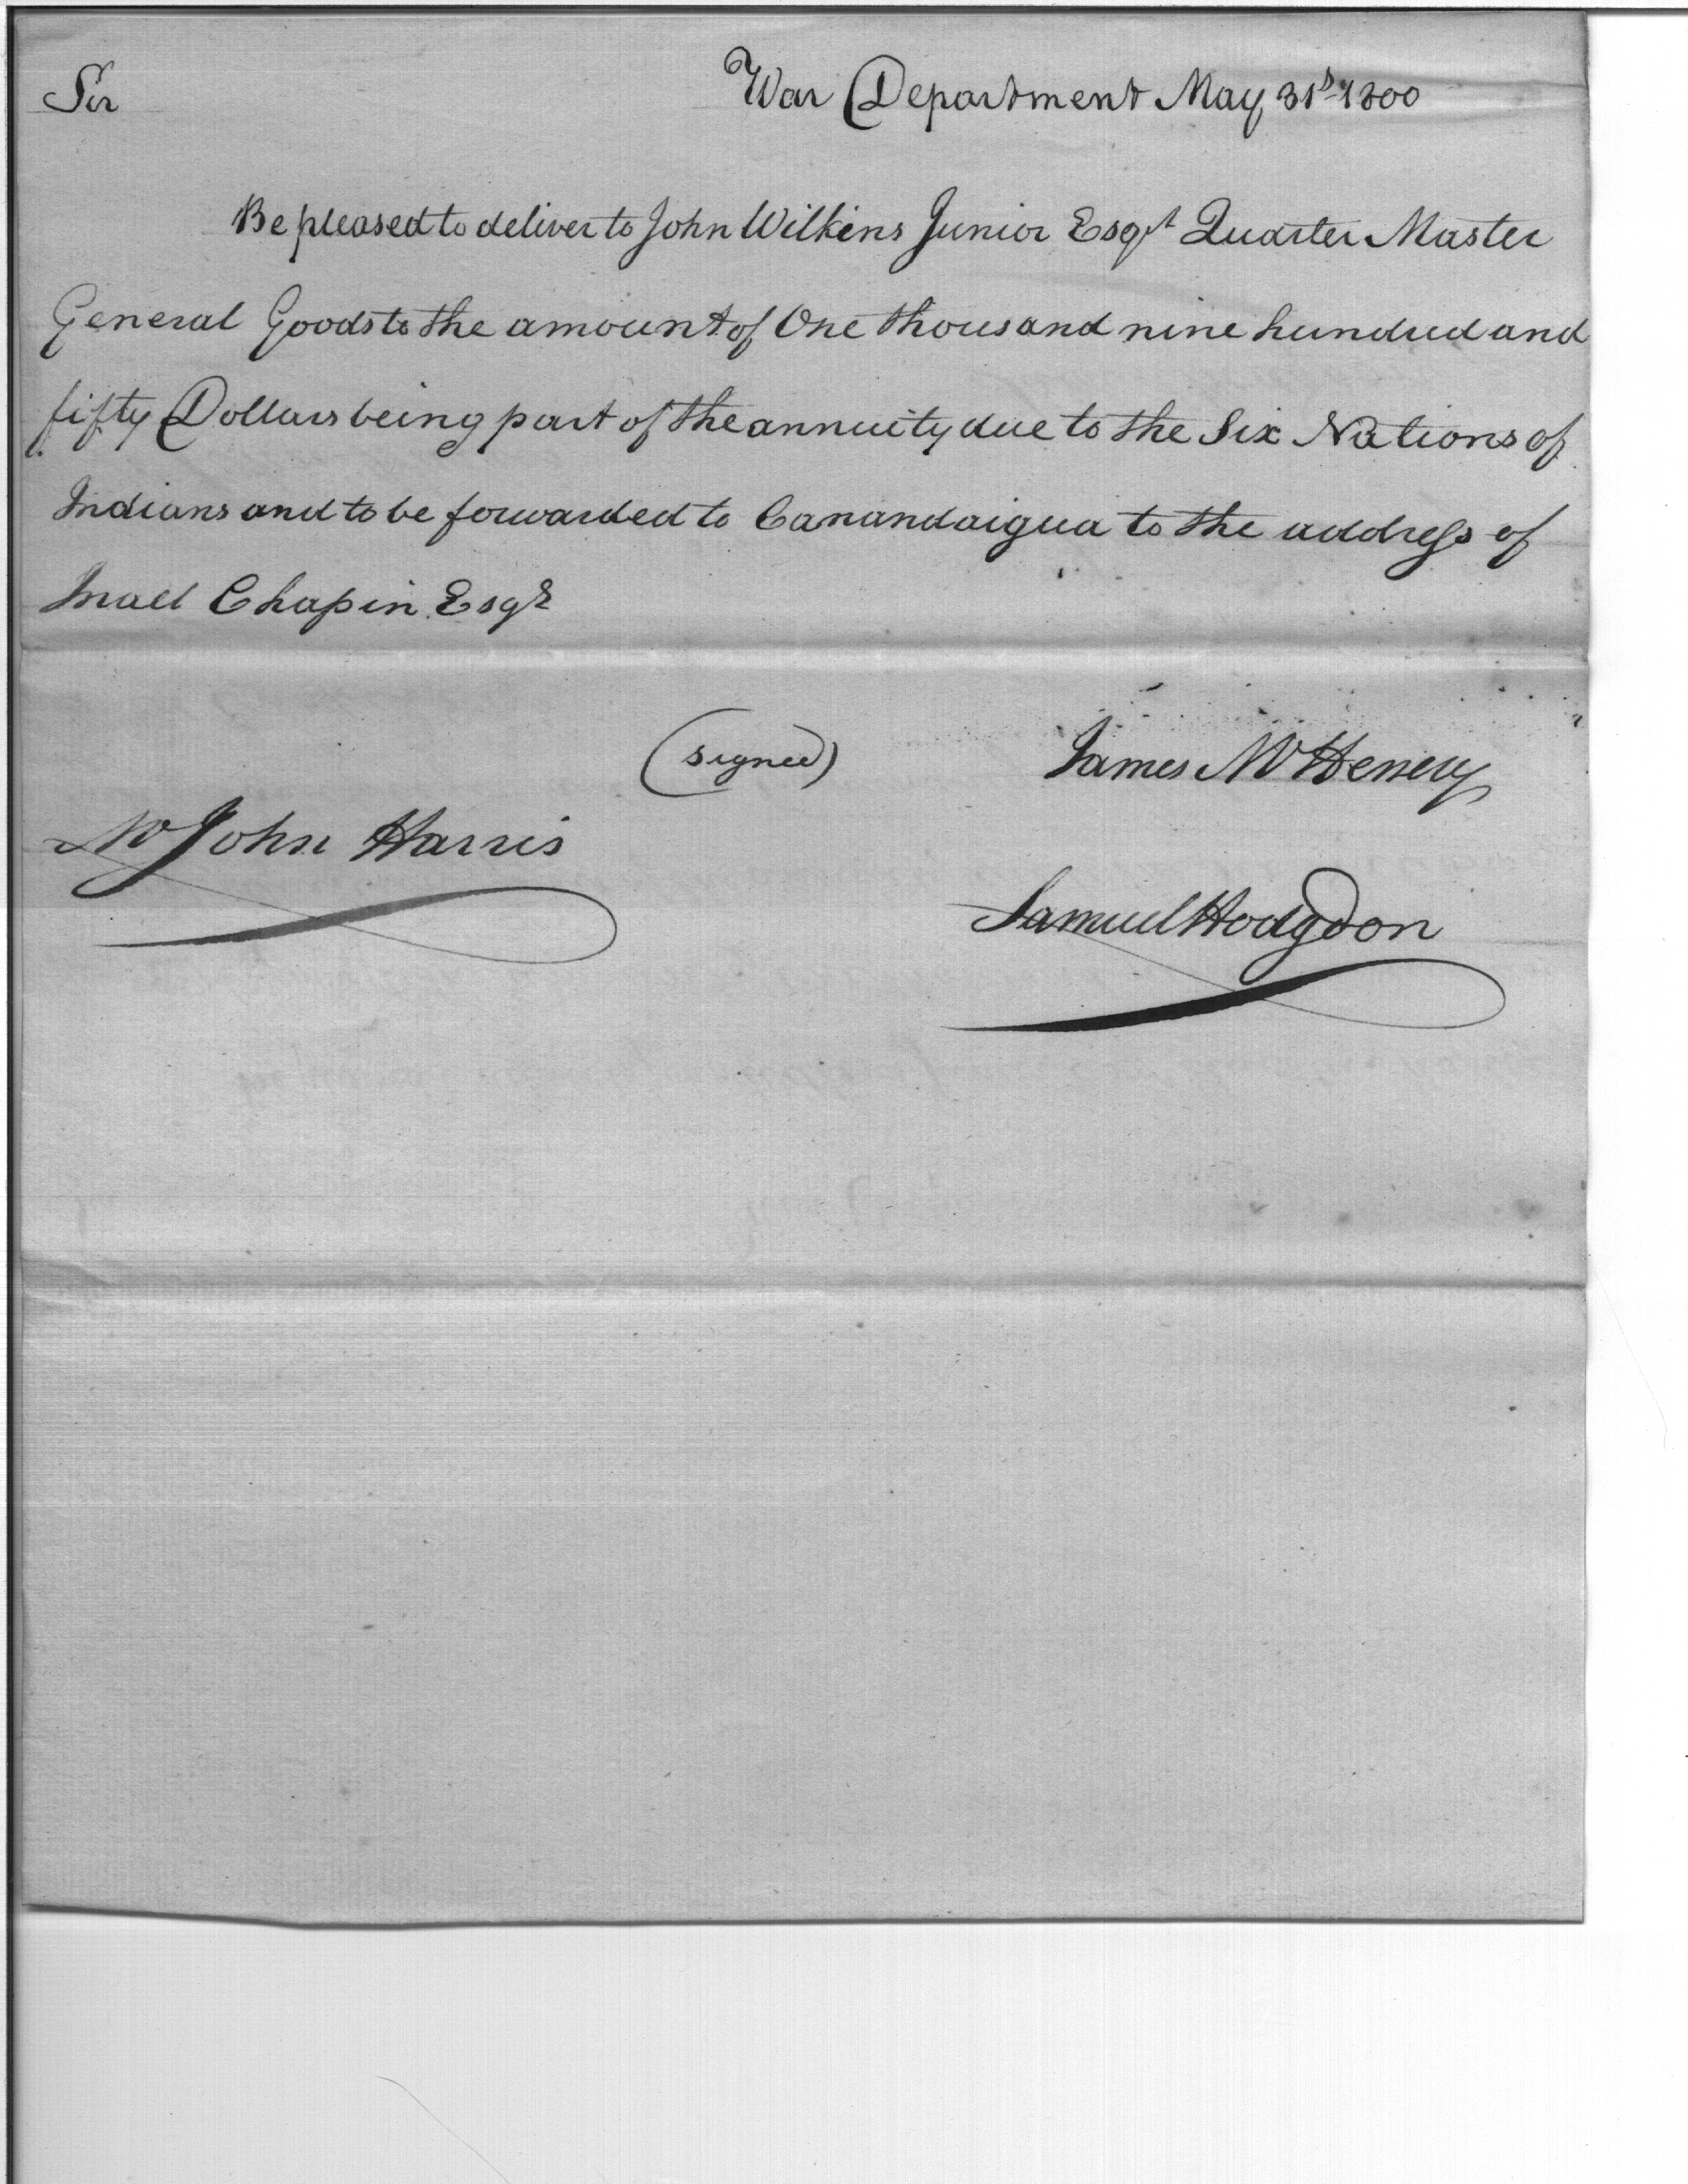 Sir War Department May 31st 1800
Be pleased to deliver to John Wilkins Junior Esqr Quarter Master
General Goods to the amount of One thousand nine hundred and
fifty Dollars being part of the annuity due to the Six Nations of
Indians and to be forwarded to Canandaigua to the address of
Chapin Esqr
(signed) James McHenry
Mr John Harris
Samuel Hodgdon